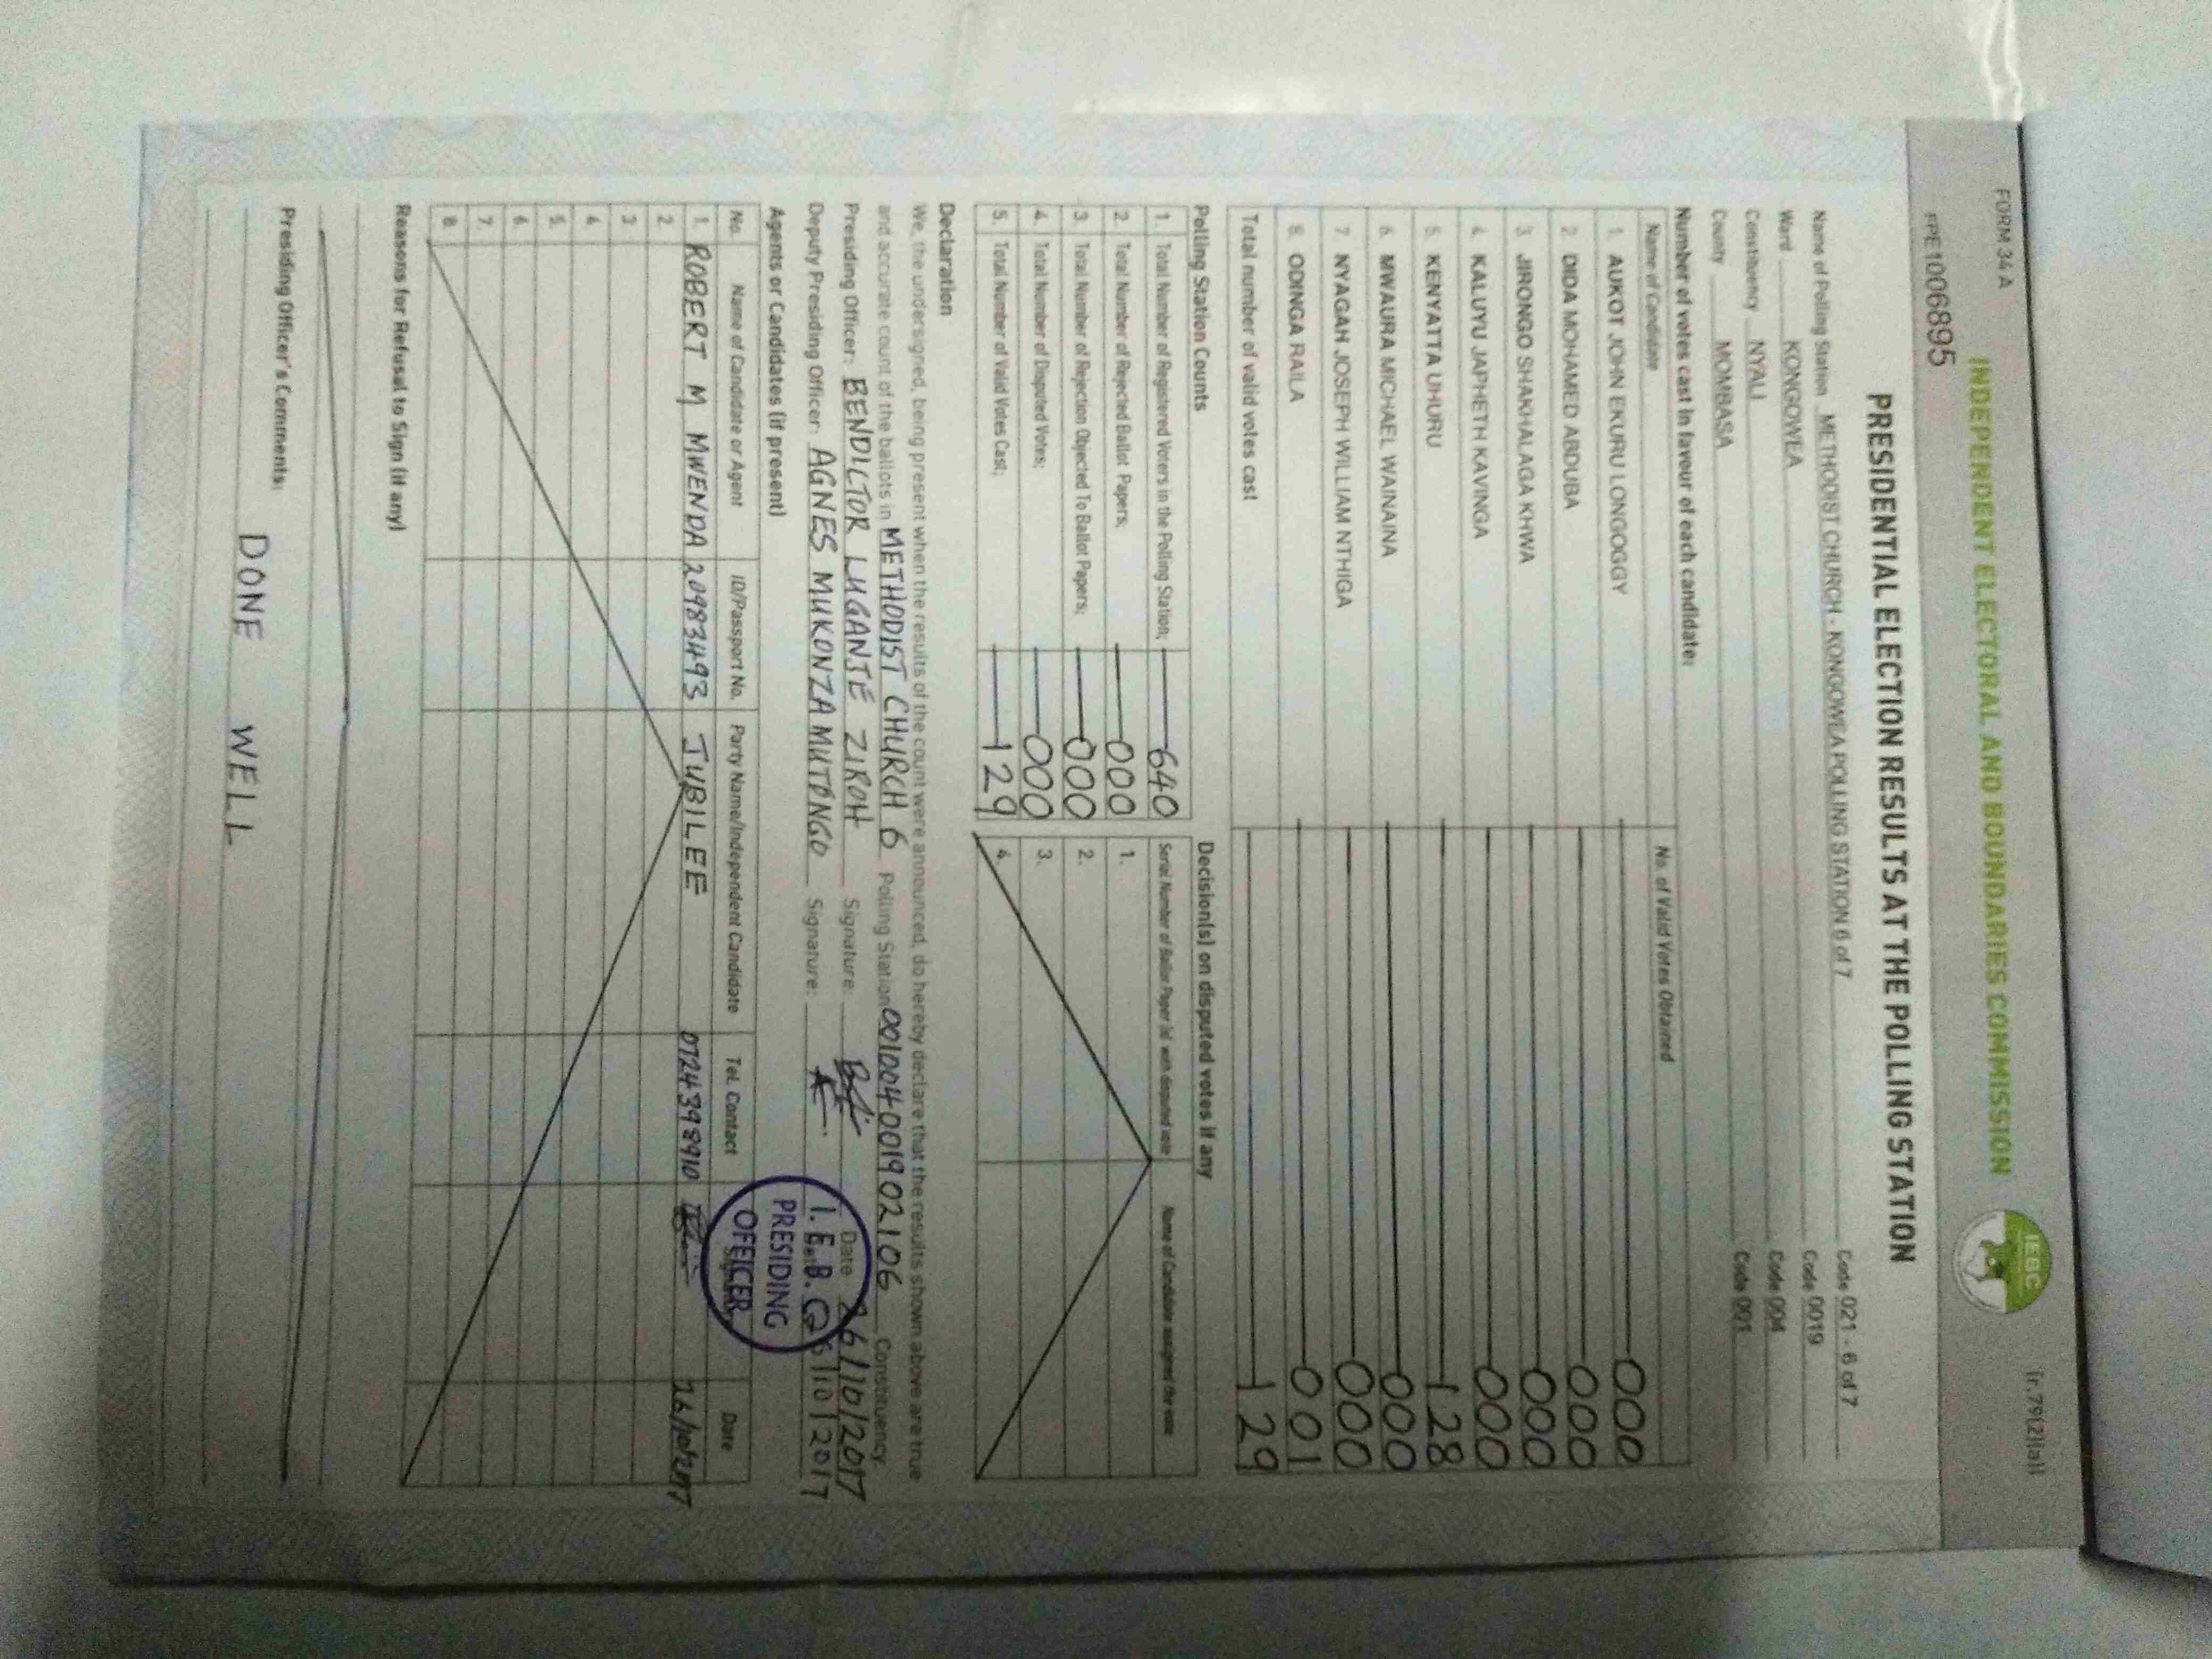 FORM 34A
[r.79(2)(a)]
INDEPENDENT ELECTORAL AND BOUNDARIES COMMISSION
IEBC
PRE1006895
PRESIDENTIAL ELECTION RESULTS AT THE POLLING STATION
Name of Polling Station METHODIST CHURCH - KONGOWEA POLLING STATION 6 of 7 Code 021 - 6 of 7
Ward KONGOWEA Code 0019
Constituency NYALI Code 004
County MOMBASA Code 001
Number of votes cast in favour of each candidate:
Name of Candidate No. of Valid Votes Obtained
1. AUKOT JOHN EKURU LONGOGGY 000
2. DIDA MOHAMED ABDUBA 000
3. JIRONGO SHAKHALAGA KHWA 000
4. KALUYU JAPHETH KAVINGA 000
5. KENYATTA UHURU 128
6. MWAURA MICHAEL WAINAINA 000
7. NYAGAH JOSEPH WILLIAM NTHIGA 000
8. ODINGA RAILA 001
Total number of valid votes cast 129
Polling Station Counts
1. Total Number of Registered Voters in the Polling Station; 640
2. Total Number of Rejected Ballot Papers; 000
3. Total Number of Rejection Objected To Ballot Papers; 000
4. Total Number of Disputed Votes; 000
5. Total Number of Valid Votes Cast; 129
Decision(s) on disputed votes if any
Serial Number of Ballot Paper (s) with disputed vote Name of Candidate assigned the vote
1.
2.
3.
4.
Declaration
We, the undersigned, being present when the results of the count were announced, do hereby declare that the results shown above are true
and accurate count of the ballots in METHODIST CHURCH 6 Polling Station 001004001902106 Constituency.
Presiding Officer: BENDICTOR LUGANJE ZIROH Signature: Date 26/10/2017
Deputy Presiding Officer: AGNES MUKONZA MUTONGO Signature: 26/10/2017
I.E.B.C
PRESIDING
OFFICER
Agents or Candidates (if present)
No. Name of Candidate or Agent ID/Passport No. Party Name/Independent Candidate Tel. Contact Signature Date
1. ROBERT M MWENDA 20983493 JUBILEE 0724398910 26/10/2017
2.
3
4.
5.
6.
7.
8.
Reasons for Refusal to Sign (if any)
Presiding Officer's Comments:
DONE WELL